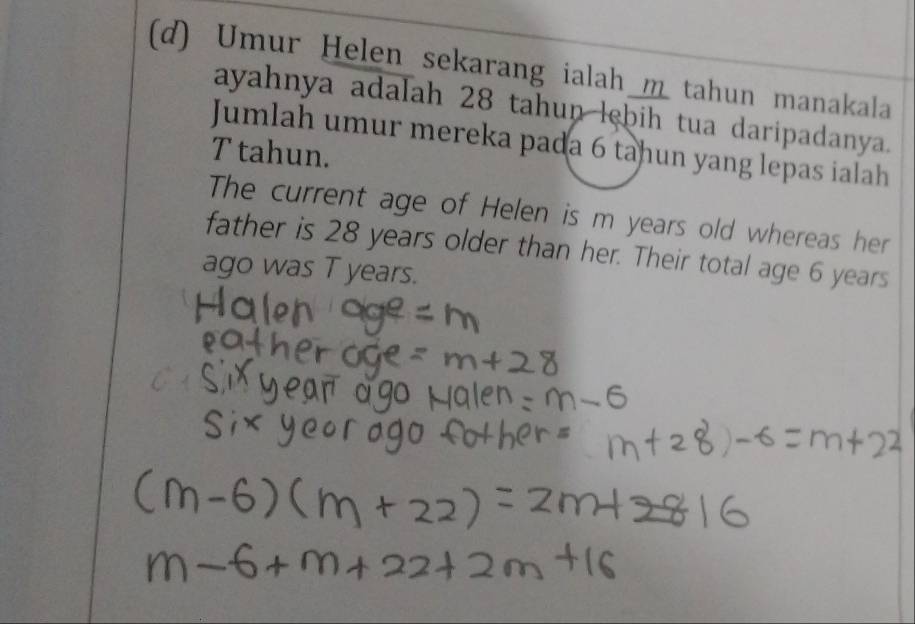 (d) Umur Helen sekarang ialah m tahun manakala
ayahnya adalah 28 tahun lebih tua daripadanya.
Jumlah umur mereka pada 6 tahun yang lepas ialah
T tahun.
The current age of Helen is m years old whereas her
father is 28 years older than her. Their total age 6 years
ago was T years.
Halen age = m
eather age = m+28
Six year ago Halen = m-6
Six year ago father = (m+28)-6 = m+22
(m-6)(m+22) = 2m+16
m-6+m+22+2m+16